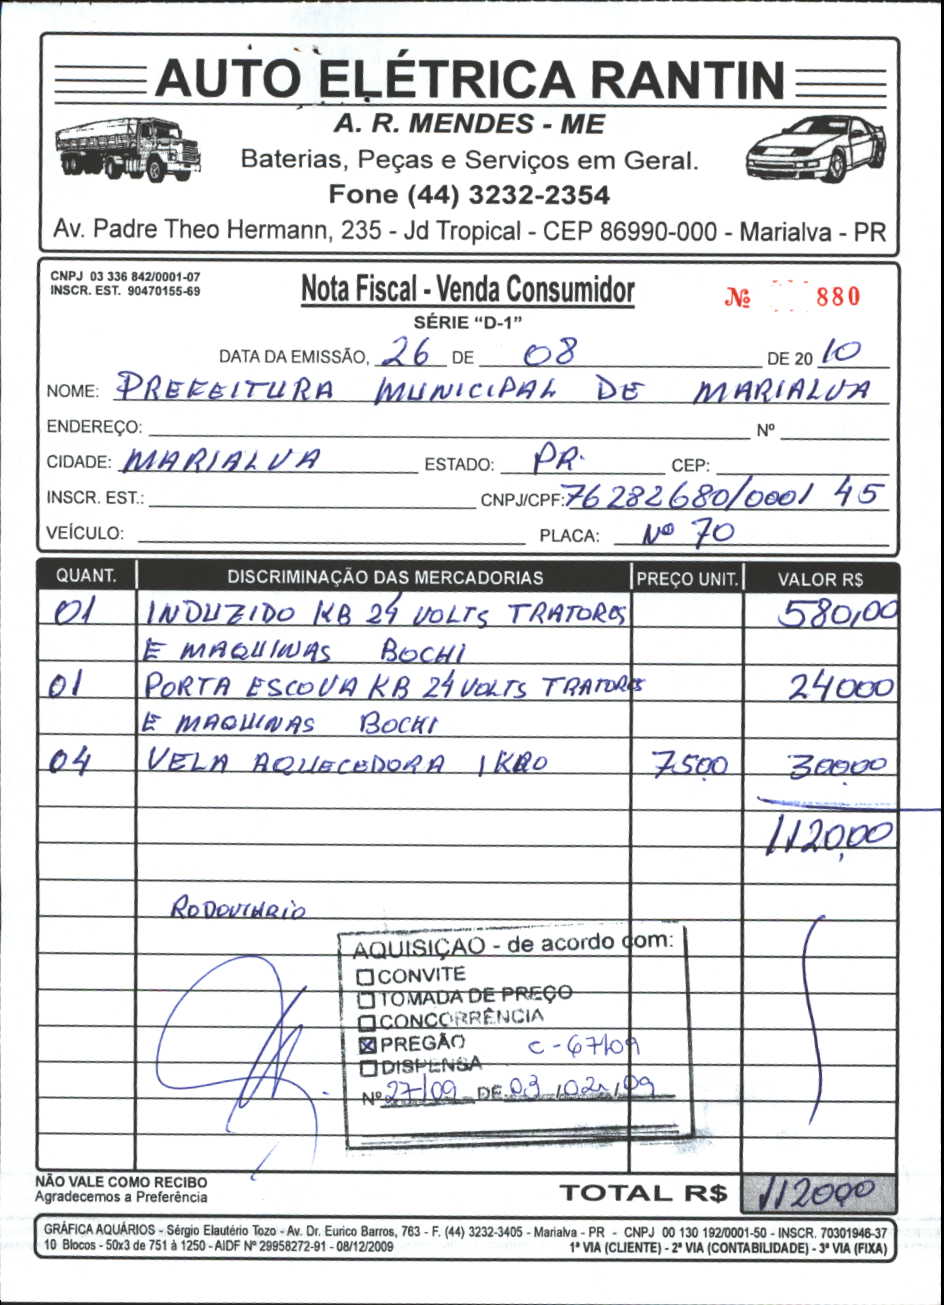 AUTO ELÉTRICA RANTIN
A. R. MENDES - ME
Baterias, Peças e Serviços em Geral.
Fone (44) 3232-2354
Av. Padre Theo Hermann, 235 - Jd Tropical - CEP 86990-000 - Marialva - PR
CNPJ 03 336 842/0001-07
INSCR. EST. 90470155-69
Nota Fiscal - Venda Consumidor
Nº 880
SÉRIE "D-1"
DATA DA EMISSÃO, 26 DE 08 DE 2010
NOME: PREFEITURA MUNICIPAL DE MARIALVA
ENDEREÇO: Nº
CIDADE: MARIALVA ESTADO: PR. CEP:
INSCR. EST.: CNPJ/CPF: 76282680/0001 45
VEÍCULO: PLACA: Nº 70
QUANT. DISCRIMINAÇÃO DAS MERCADORIAS PREÇO UNIT. VALOR R$
01 INDUZIDO KB 24 VOLTS TRATORES 580,00
E MAQUINAS BOCHI
01 PORTA ESCOVA KB 24 VOLTS TRATORES 24000
E MAQUINAS BOCHI
04 VELA AQUECEDORA 7500 30000
1120,00
RODOVIARIO
AQUISIÇÃO - de acordo com:
CONVITE
TOMADA DE PREÇO
CONCORRÊNCIA
PREGÃO C-67/09
DISPENSA
Nº 27/09 DE 03/02/09
NÃO VALE COMO RECIBO
Agradecemos a Preferência
TOTAL R$ 112000
GRÁFICA AQUÁRIOS - Sérgio Elautério Tozo - Av. Dr. Eurico Barros, 763 - F. (44) 3232-3405 - Marialva - PR - CNPJ 00 130 192/0001-50 - INSCR. 70301946-37
10 Blocos - 50x3 de 751 à 1250 - AIDF Nº 29958272-91 - 08/12/2009 1ª VIA (CLIENTE) - 2ª VIA (CONTABILIDADE) - 3ª VIA (FIXA)